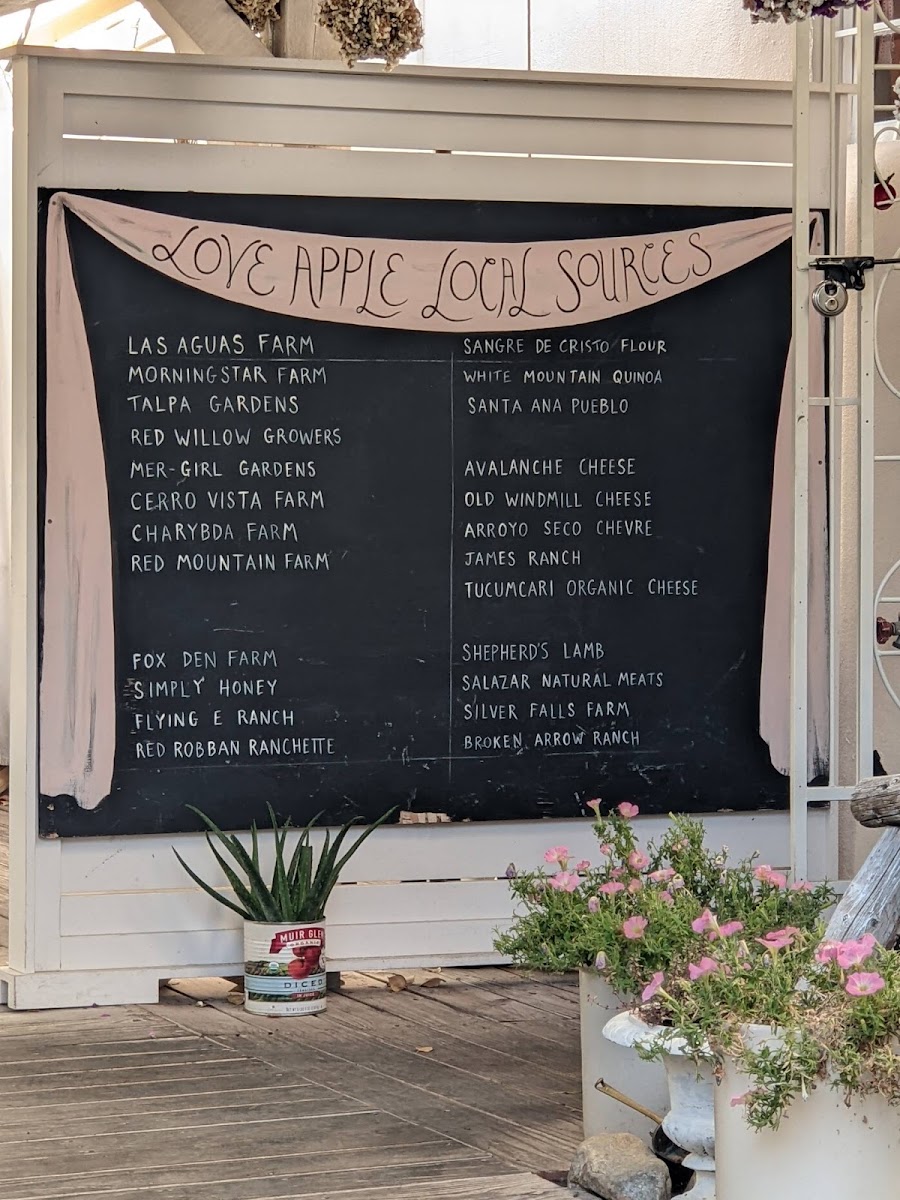 LOVE APPLE LOCAL SOURCES
LAS AGUAS FARM
MORNINGSTAR FARM
TALPA GARDENS
RED WILLOW GROWERS
MER-GIRL GARDENS
CERRO VISTA FARM
CHARYBDA FARM
RED MOUNTAIN FARM
FOX DEN FARM
SIMPLY HONEY
FLYING E RANCH
RED ROBBAN RANCHETTE
SANGRE DE CRISTO FLOUR
WHITE MOUNTAIN QUINOA
SANTA ANA PUEBLO
AVALANCHE CHEESE
OLD WINDMILL CHEESE
ARROYO SECO CHEVRE
JAMES RANCH
TUCUMCARI ORGANIC CHEESE
SHEPHERD'S LAMB
SALAZAR NATURAL MEATS
SILVER FALLS FARM
BROKEN ARROW RANCH
MUIR GLEN
ORGANIC
DICED